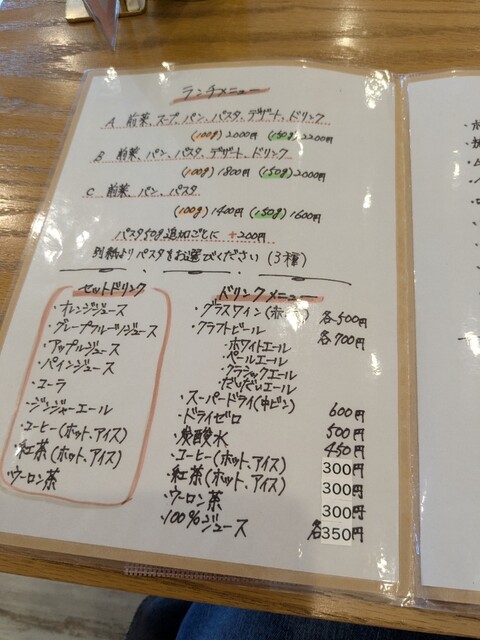 ランチメニュー
A 前菜、スープ、パン、パスタ、デザート、ドリンク
(100g) 2000円 (150g) 2200円
B 前菜、パン、パスタ、デザート、ドリンク
(100g) 1800円 (150g) 2000円
C 前菜、パン、パスタ
(100g) 1400円 (150g) 1600円
パスタ50g追加ごとに +200円
別紙よりパスタをお選びください(3種)
セットドリンク
・オレンジジュース
・グレープフルーツジュース
・アップルジュース
・パインジュース
・コーラ
・ジンジャーエール
・コーヒー(ホット、アイス)
・紅茶(ホット、アイス)
・ウーロン茶
ドリンクメニュー
・グラスワイン(赤 各500円
・クラフトビール 各700円
・ホワイトエール
・ペールエール
・クラシックエール
・だいだいエール
・スーパードライ(中ビン) 600円
・ドライゼロ 500円
・炭酸水 450円
・コーヒー(ホット、アイス) 300円
・紅茶(ホット、アイス) 300円
・ウーロン茶 300円
・100%ジュース 各350円